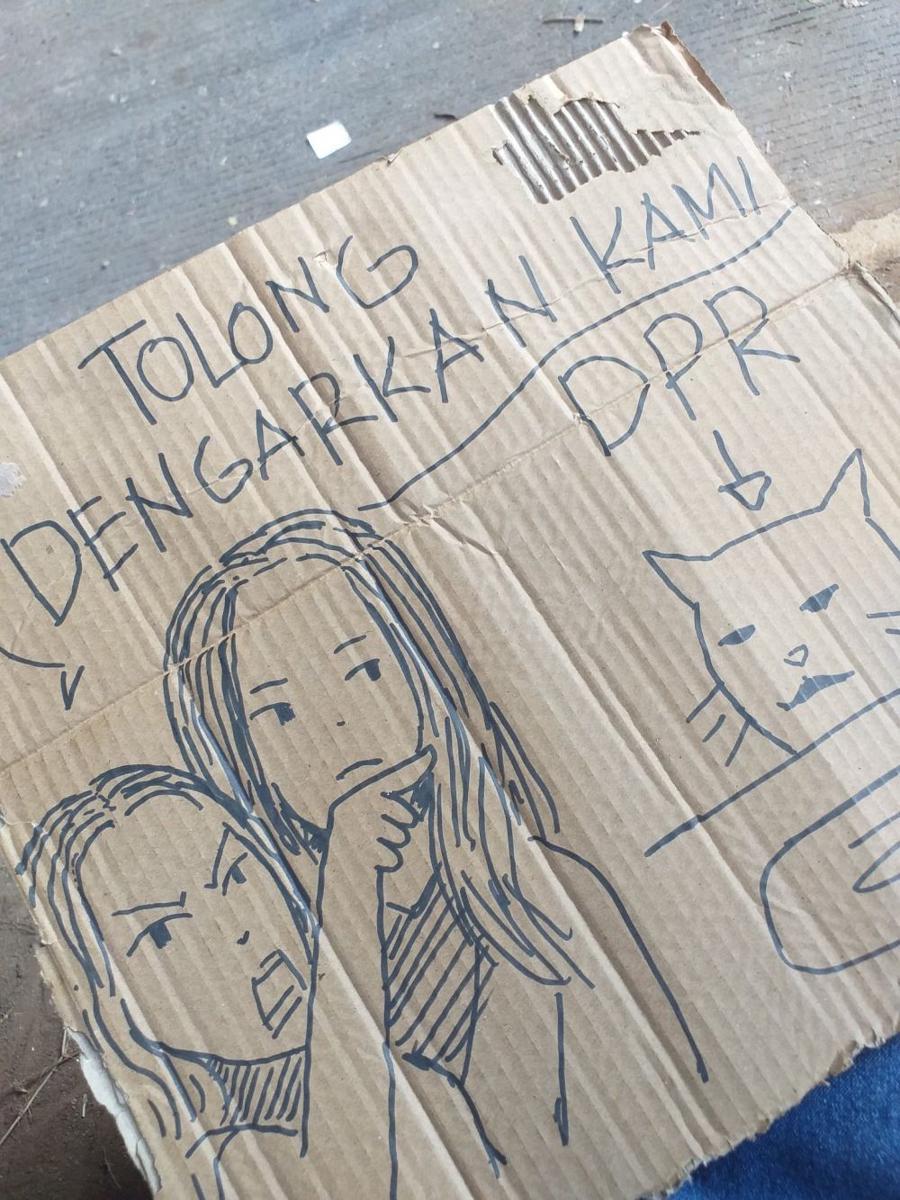 TOLONG
DENGARKAN KAMI
DPR